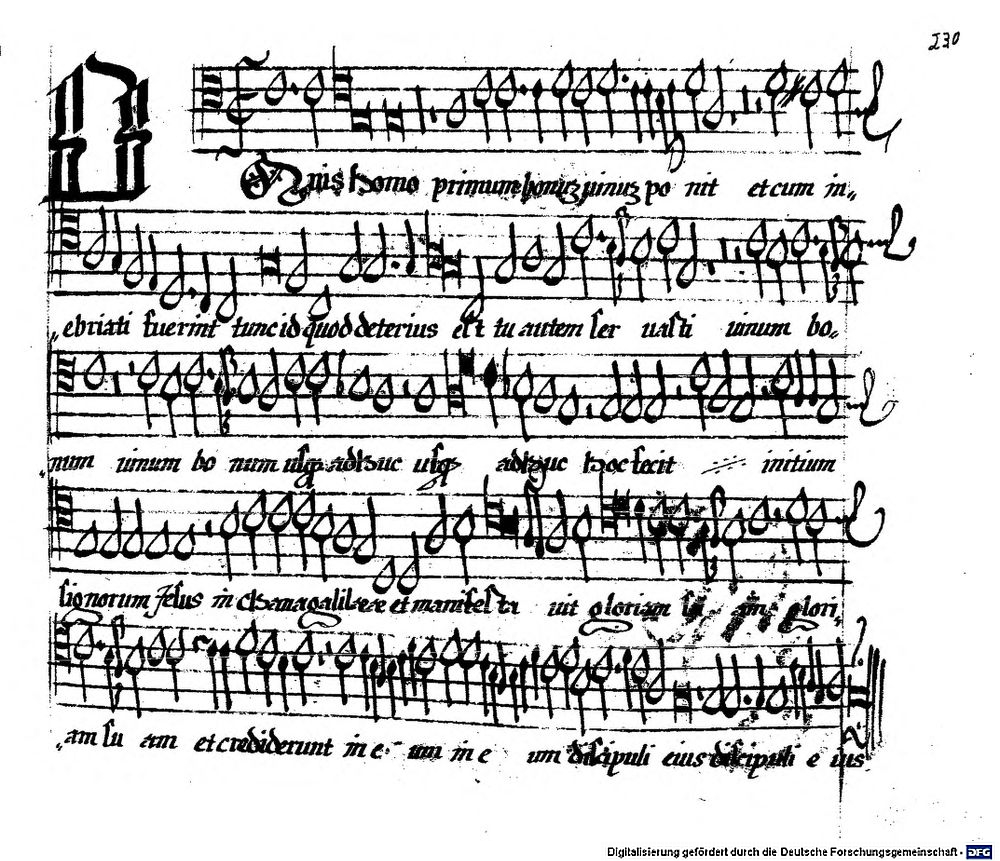 230
Omnis homo primum bonum vinum po nit et cum in„
„ebriati fuerint tunc id quod deterius est tu autem ser uasti uinum bo„
„num uinum bo num usq adhuc usq adhuc hoc fecit initium
signorum Jesus in Chana galileae et manifesta uit gloriam su am glori„
„am su am et crediderunt in e um in e um discipuli eius discipuli e ius
Digitalisierung gefördert durch die Deutsche Forschungsgemeinschaft - DFG